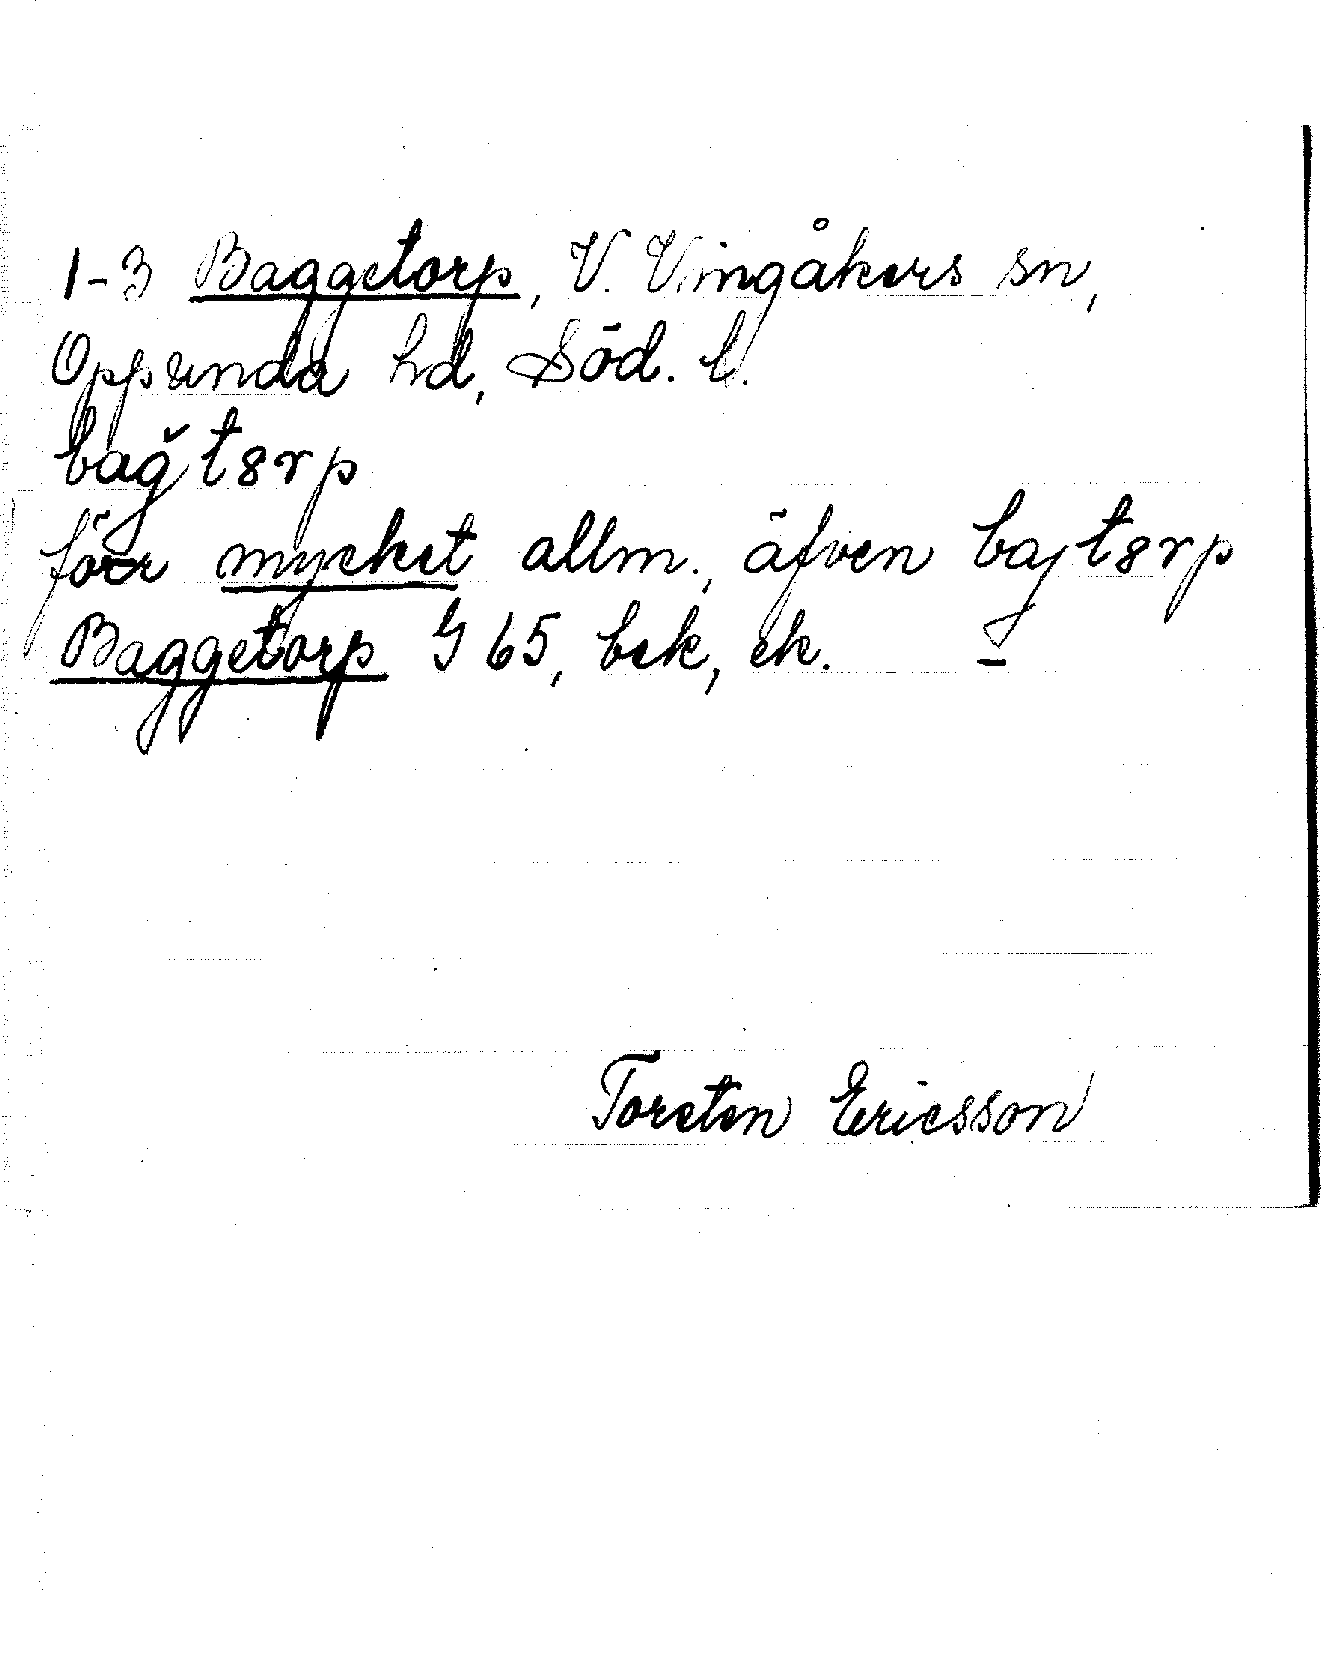 1-3 Baggetorp, V. Vingåkers sn,
Oppunda hd, Söd. l.
bağt8rp
förr mycket allm., äfven bajt8rp
Baggetorp G 65, bek, ek.
Torsten Ericsson